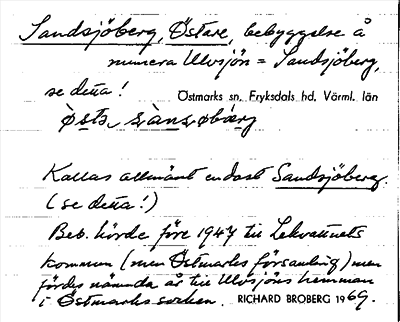 Sandsjöberg, Östare, bebyggelse å
numera Ulvsjön = Sandsjöberg,
se detta!
Östmarks sn, Fryksdals hd, Värml. län
Kallas allmänt endast Sandsjöberg.
(se detta!)
Beb. hörde före 1947 till Lekvattnets
kommun (men Östmarks församling) men
fördes nämnda år till Ulvsjöns hemman
i Östmarks socken. RICHARD BROBERG 1969.